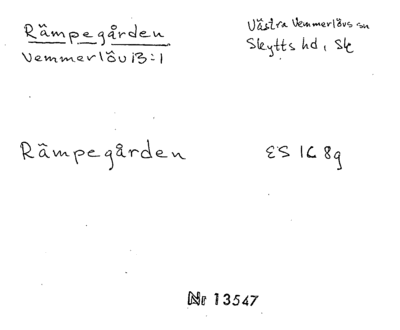 Rämpegården
Vemmerlöv 13:1
Västra Vemmerlövs sn
Skytts hd, Sk
Rämpegården
ES 1C 8g
Nr 13547